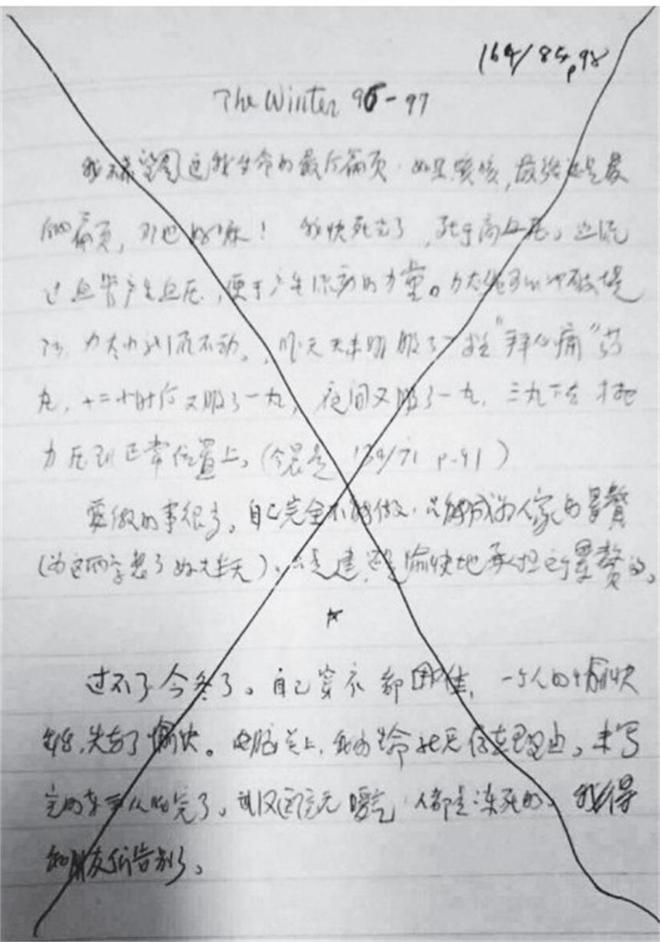 164/85 p98
The Winter 96-97
我不希望图这我生命的最后篇页。如果咳咳，故然还是最
后的篇页，那也好嘛！我快死去了，死于高血压。血流
过血管产生血压，便于产生流动的力量。力太
力太小就流不动。昨天天未明服了一粒“拜心痛”药
丸，十二小时后又服了一丸，夜间又服了一丸，三丸下去才把
力压到正常位置上。(今晨是 139/71 p.91)
要做的事很多，自己完全不能做，只能成为人家的累赘
(为这两字想了好大半天)，愉快地承担这个累赘的。
过不了今冬了。自己穿衣都困难，一个人的愉快
失去了愉快。我的生命已无存在理由，未写
完的东西从此完了。武汉医院无暖气，人都是冻死的。我得
和朋友们告别了。